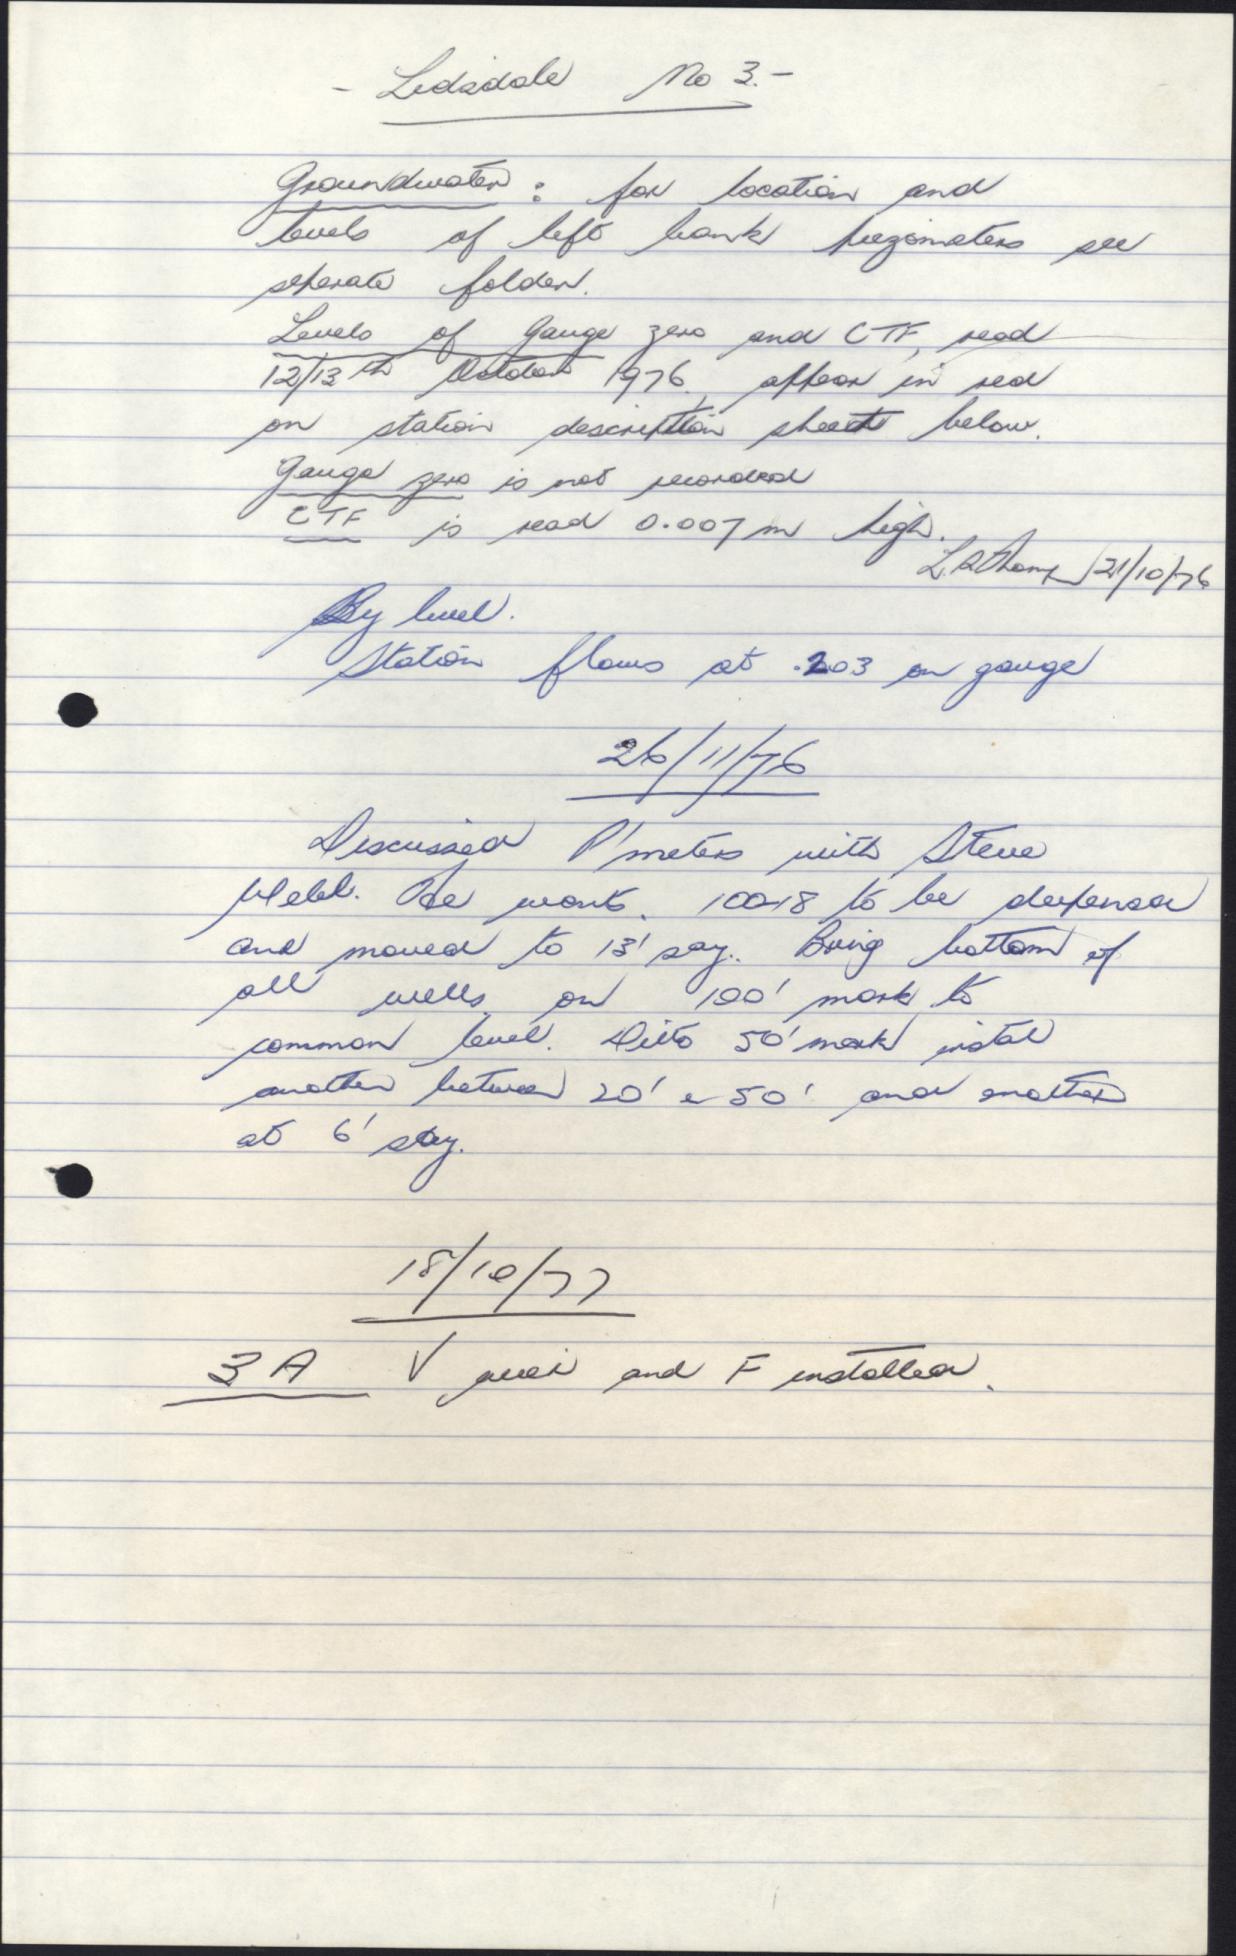 - Lidsdale No 3. -
Groundwater: for location and
levels of left bank piezometers see
seperate folder.
Levels of Gauge zero and CTF, read
12/13th October 1976, appear in red
on station description sheet below.
Gauge zero is not recorded
CTF is read 0.007m high.
21/10/76
By level.
Station flows at .203 on gauge
26/11/76
Discussed P'meters with Steve
Webb. He wants 100-18 to be deepened
and moved to 13' say. Bring bottom of
all wells on 100' mark to
common level. Ditto 50' mark instal
another between 20' & 50' and another
at 6' say.
18/10/77
3A V weir and F installed.